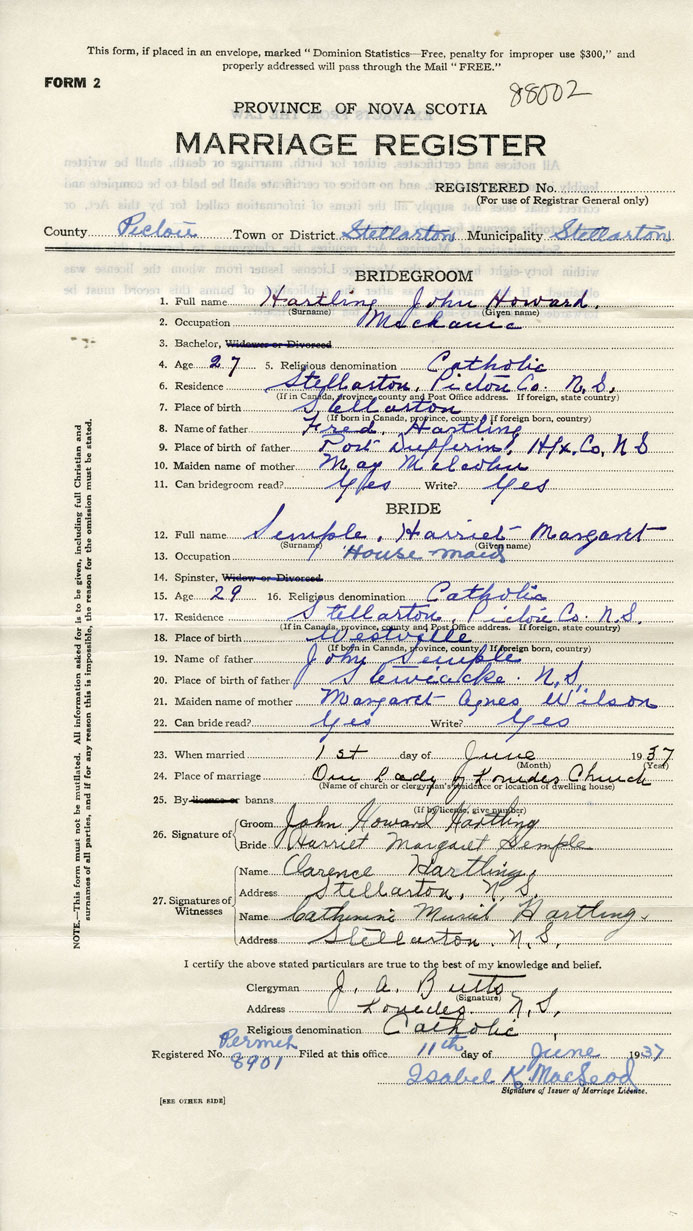 This form, if placed in an envelope, marked "Dominion Statistics—Free, penalty for improper use $300," and
properly addressed will pass through the Mail "FREE."
FORM 2
88002
PROVINCE OF NOVA SCOTIA
MARRIAGE REGISTER
REGISTERED No.
(For use of Registrar General only)
County Pictou Town or District Stellarton Municipality Stellarton
BRIDEGROOM
1. Full name Hartling John Howard.
(Surname) (Given name)
2. Occupation Mechanic
3. Bachelor, Widower or Divorced
4. Age 27 5. Religious denomination Catholic
6. Residence Stellarton, Pictou Co. N.S.
(If in Canada, province, county and Post Office address. If foreign, state country)
7. Place of birth Stellarton
(If born in Canada, province, county. If foreign born, country)
8. Name of father Fred. Hartling
9. Place of birth of father Port Dufferin, Hfx. Co, N S
10. Maiden name of mother May
11. Can bridegroom read? Yes Write? Yes
BRIDE
12. Full name Semple, Harriet Margaret
(Surname) (Given name)
13. Occupation House maid
14. Spinster, Widow or Divorced
15. Age 29 16. Religious denomination Catholic
17. Residence Stellarton, Pictou Co. N.S.
(If in Canada, province, county and Post Office address. If foreign, state country)
18. Place of birth Westville
(If born in Canada, province, county. If foreign born, country)
19. Name of father John Semple
20. Place of birth of father Stewiacke N.S,
21. Maiden name of mother Margaret Agnes Wilson
22. Can bride read? Yes Write? Yes
23. When married 1st day of June 1937
(Month) (Year)
24. Place of marriage Our Lady of Lourdes Church
(Name of church or clergyman's residence or location of dwelling house)
25. By license or banns
(If by license, give number)
26. Signature of
Groom John Howard Hartling
Bride Harriet Margaret Semple
27. Signatures of Witnesses
Name Clarence Hartling,
Address Stellarton, N.S.
Name Catherine Muriel Hartling.
Address Stellarton. N.S.
I certify the above stated particulars are true to the best of my knowledge and belief.
Clergyman J. A. Butts
(Signature)
Address Lourdes. N.S,
Religious denomination Catholic
Permit
Registered No. 8901 Filed at this office 11th day of June 1937
Isabel K MacLeod
Signature of Issuer of Marriage License.
[SEE OTHER SIDE]
NOTE.—This form must not be mutilated. All information asked for is to be given, including full Christian and
surnames of all parties, and if for any reason this is impossible, the reason for the omission must be stated.